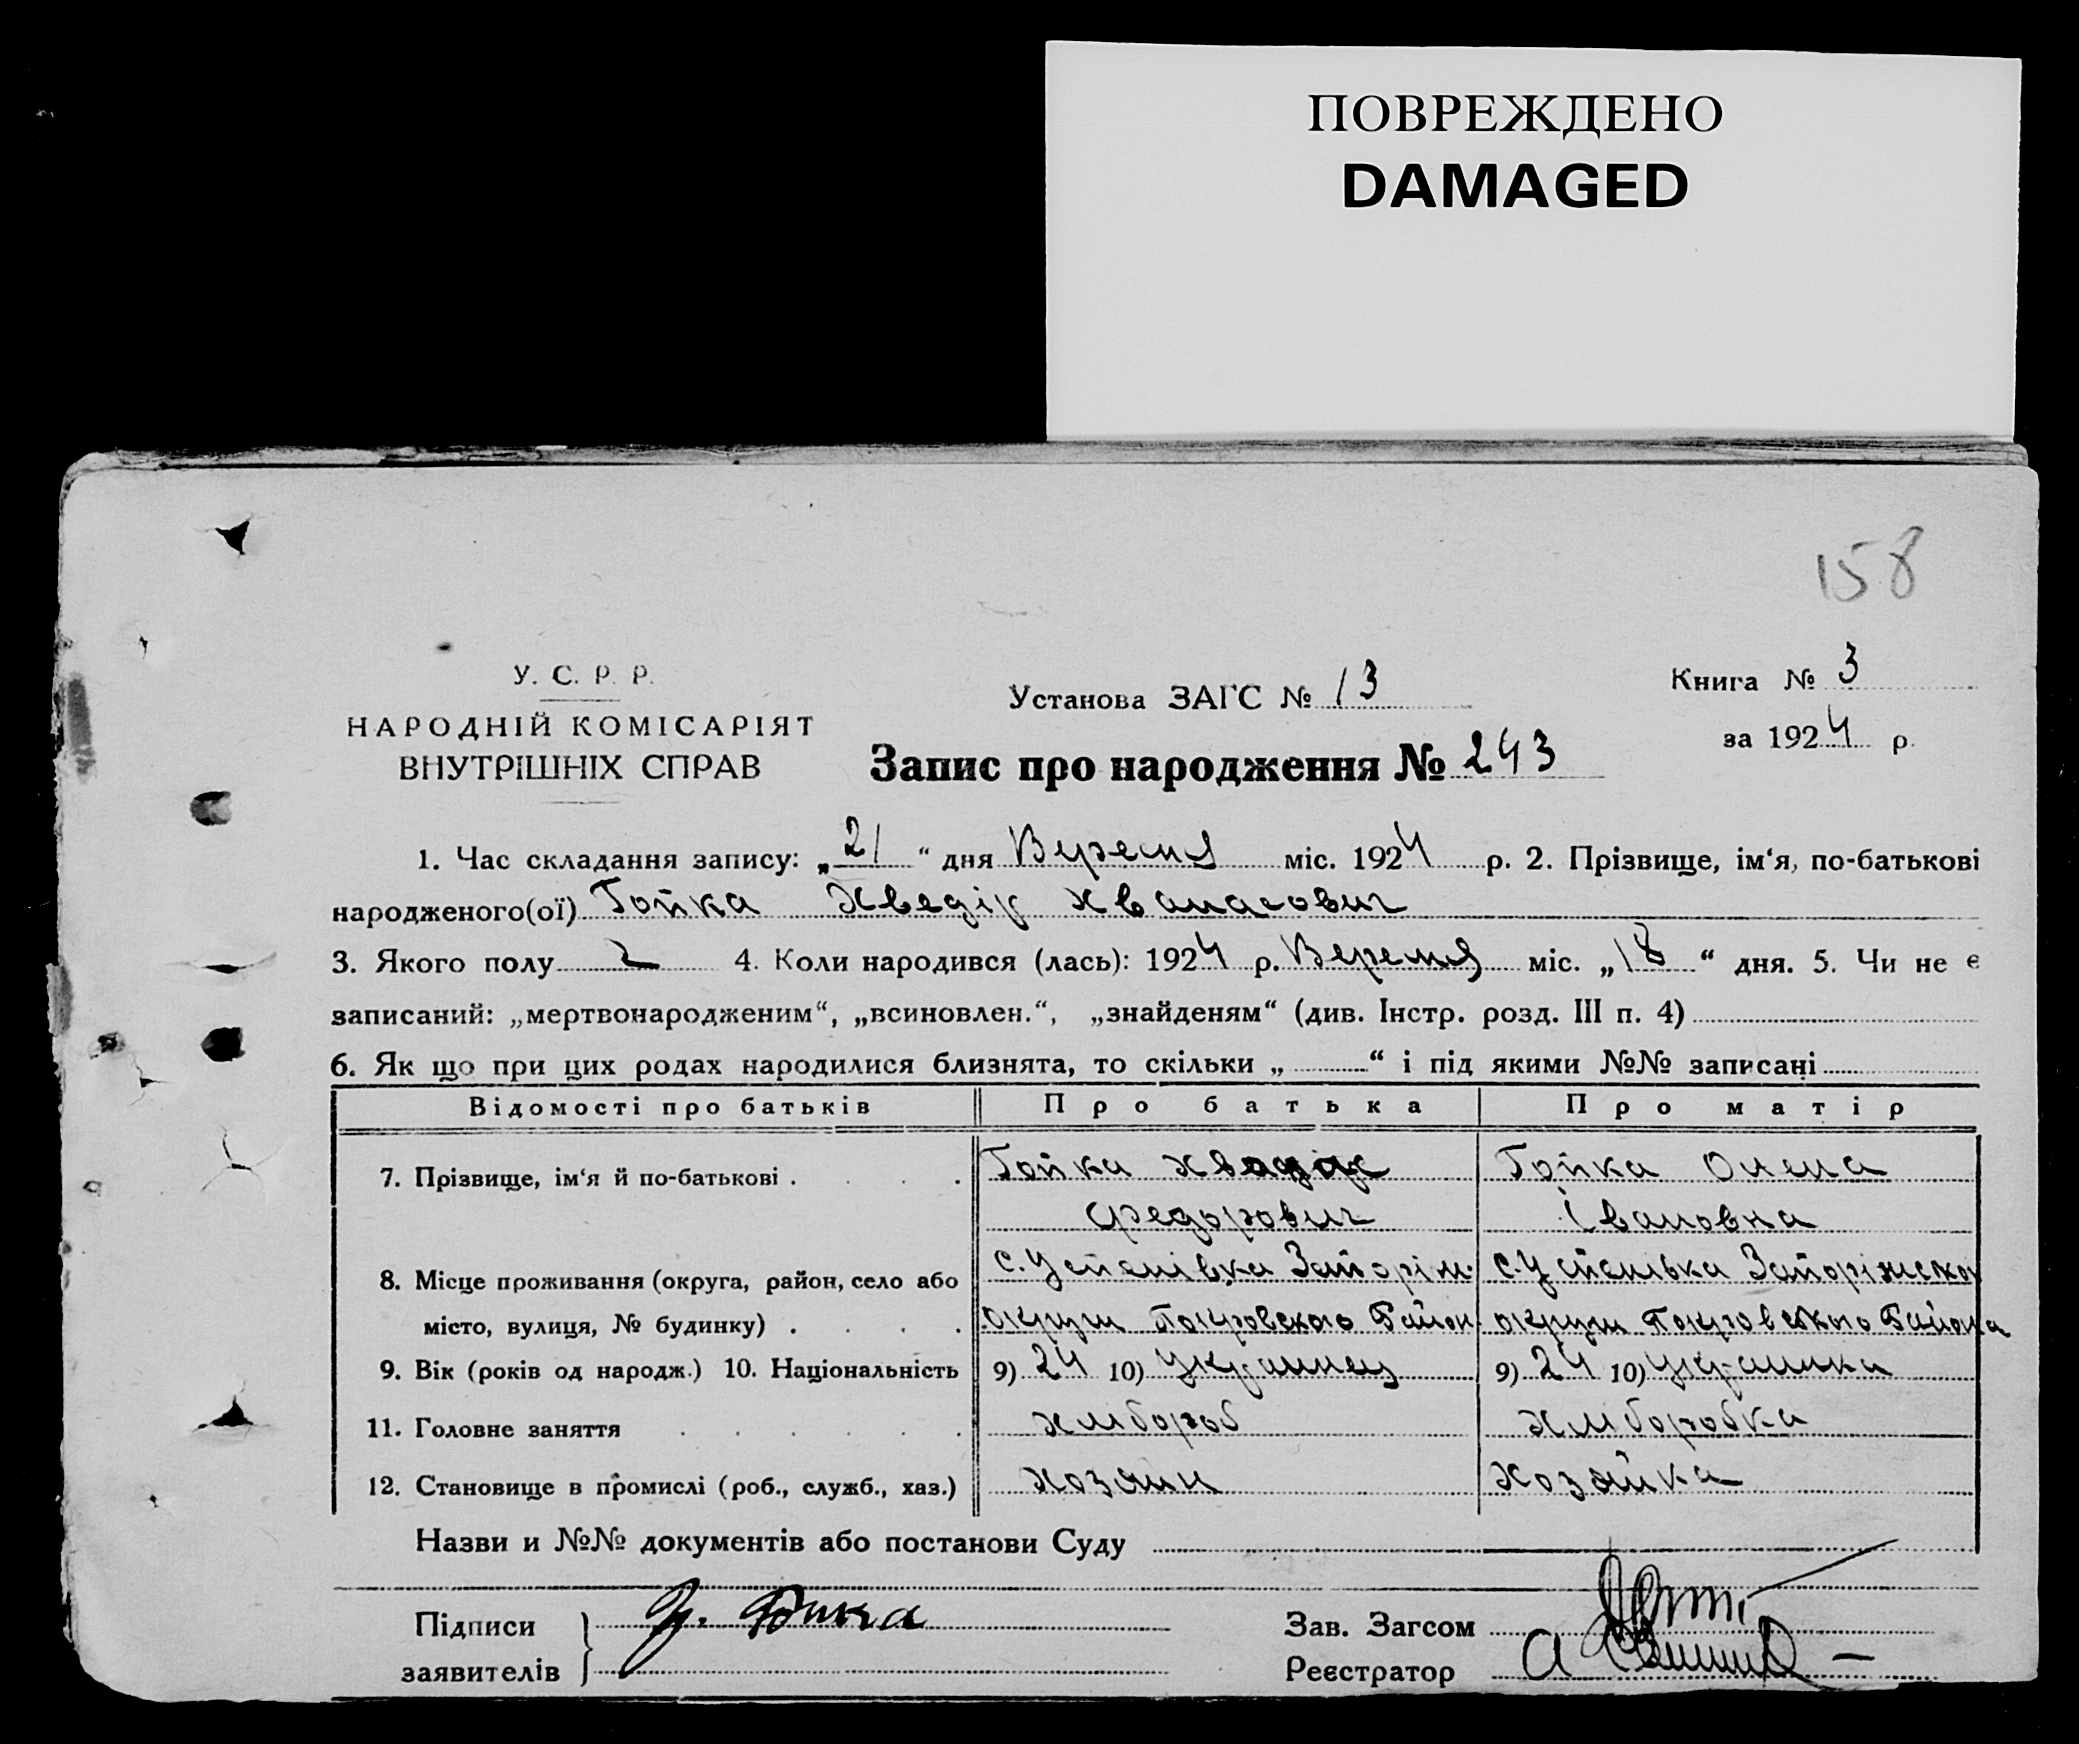 ПОВРЕЖДЕНО
DAMAGED
158
У. С. Р. Р.
НАРОДНІЙ КОМІСАРІЯТ
ВНУТРІШНІХ СПРАВ
Установа ЗАГС № 13
Книга № 3
за 1924 р.
Запис про народження № 243
1. Час складання запису: „21“ дня Вересня міс. 1924 р. 2. Прізвище, ім‘я, по-батькові
народженого(ої) Гойка Хведір Хванасович
3. Якого полу 2 4. Коли народився (лась): 1924 р. Вересня міс. „18“ дня. 5. Чи не є
записаний: „мертвонародженим“, „всиновлен.“, „знайденям“ (див. Інстр. розд. III п. 4)
6. Як що при цих родах народилися близнята, то скільки „ “ і під якими №№ записані
Відомості про батьків Про батька Про матір
7. Прізвище, ім‘я й по-батькові . . . . Гойка Гойка Олена
Федорович Івановна
8. Місце проживання (округа, район, село або с. Успенівка Запоріж. с. Успенівка
місто, вулиця, № будинку) . . . . округи Покровського Район округи Покровського Района
9. Вік (років од народж.) 10. Національність 9) 24 10) Українец 9) 24 10) Українка
11. Головне заняття . . . . . . хлібороб хліборобка
12. Становище в промислі (роб., служб., хаз.) хозяин хозяйка
Назви и №№ документів або постанови Суду
Підписи
заявителів
Зав. Загсом
Реєстратор